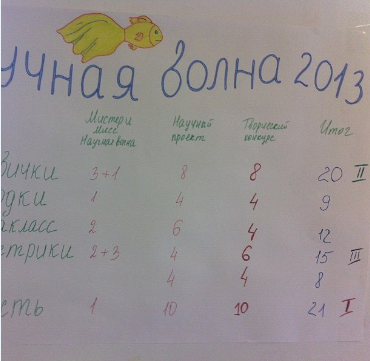 учная волна 2013
Мистер и Мисс Научная волна Научный проект Творческий конкурс Итог
вички 3+1 8 8 20 II
одки 1 4 4 9
акласс 2 6 4 12
етрики 2+3 4 6 15 III
4 4 8
сть 1 10 10 21 I